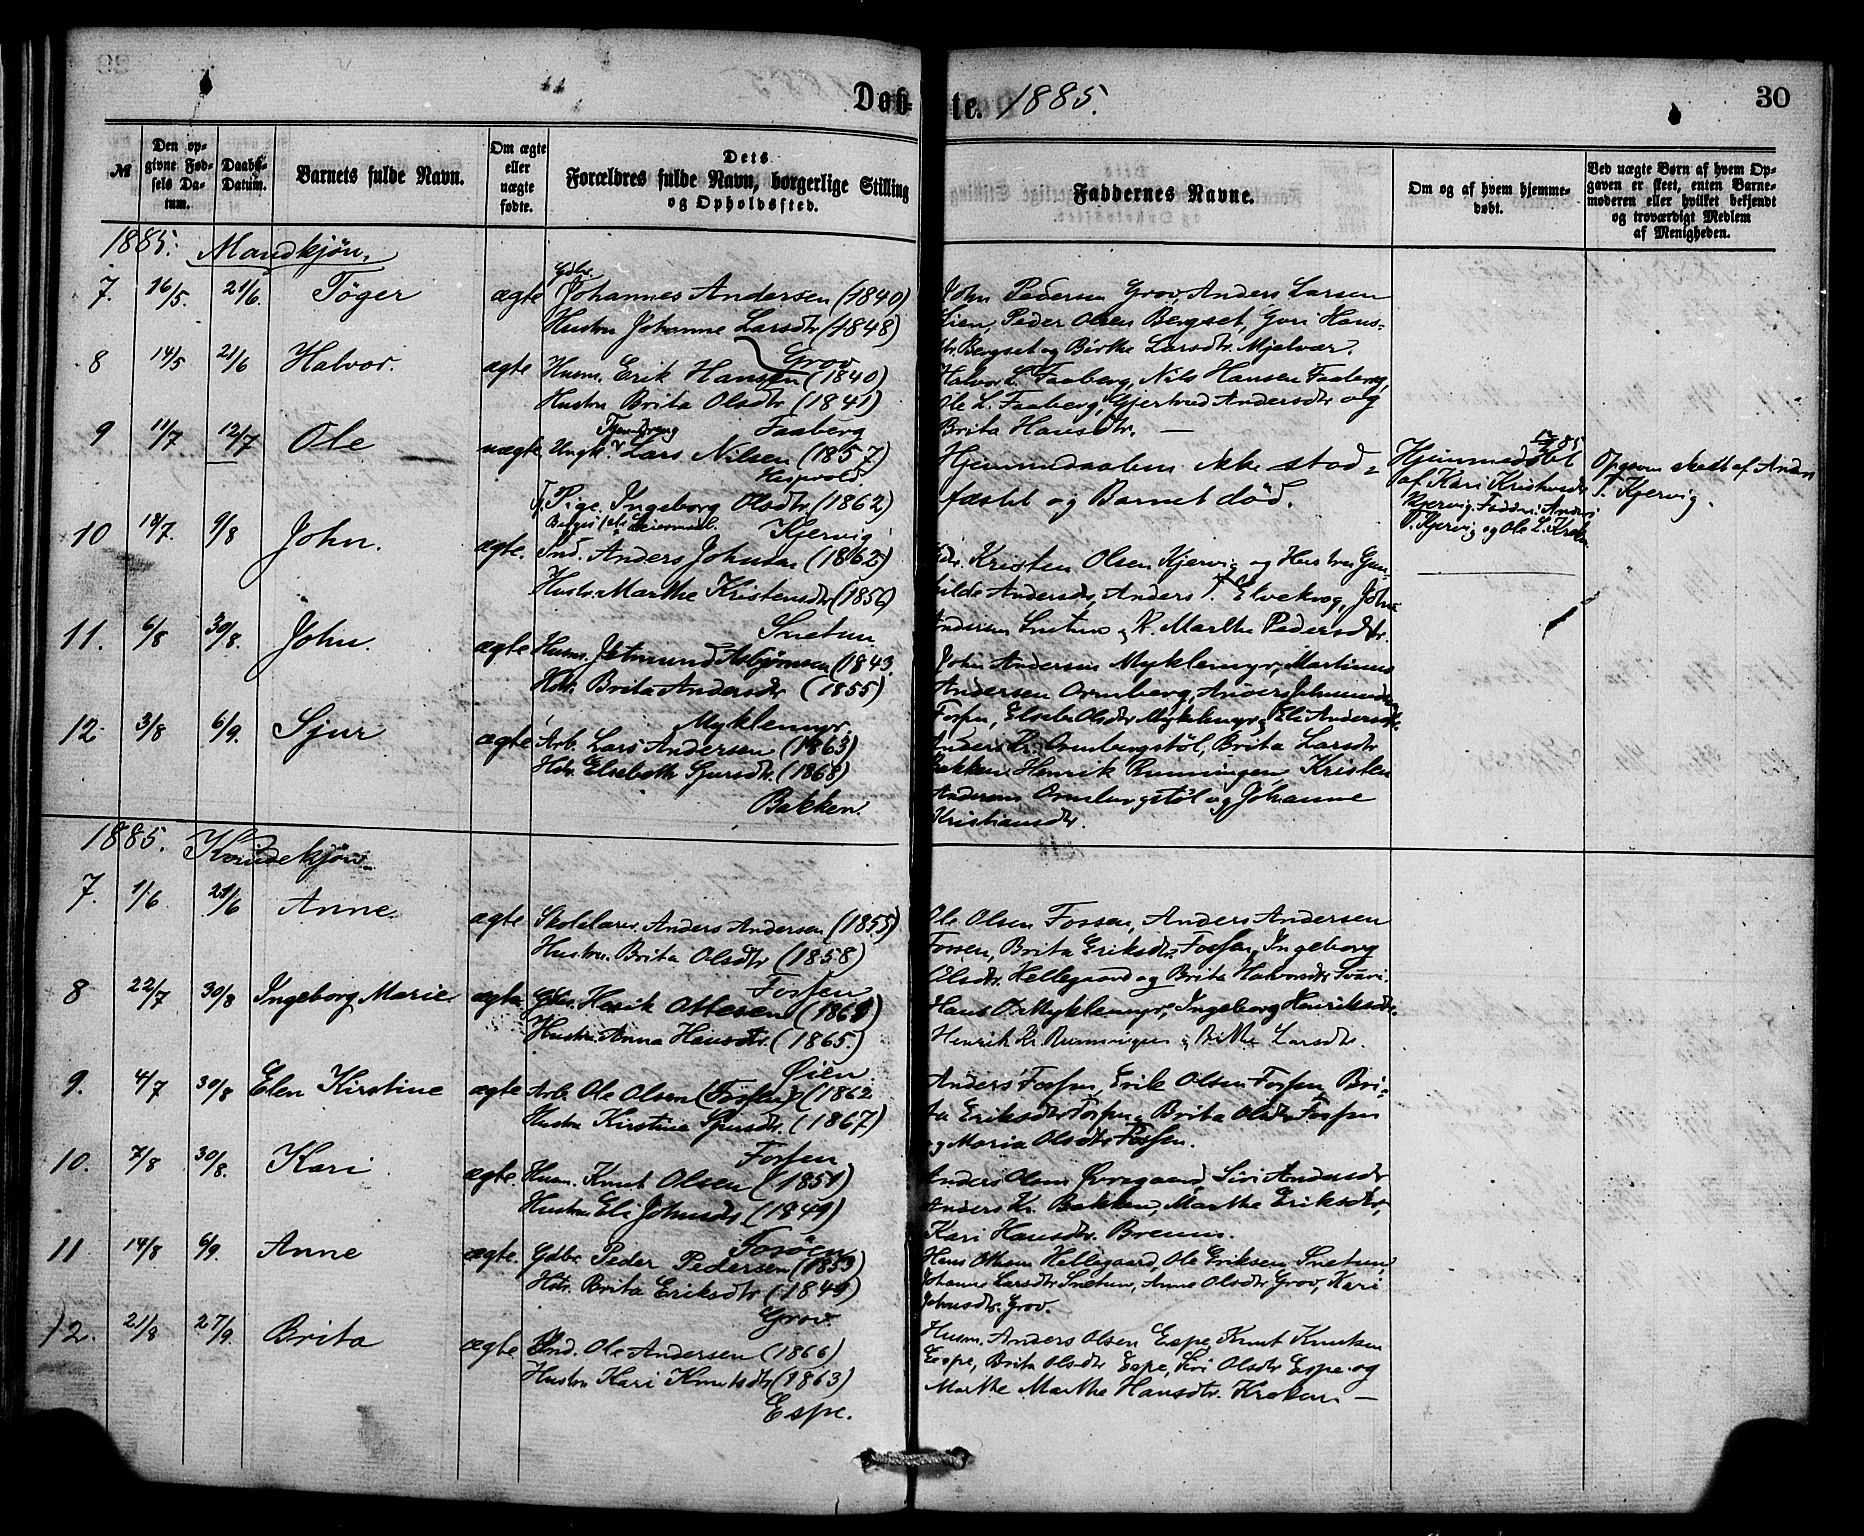 Døb-te. 1885.
30
№
Den opgivne Fødsels Datum.
Daabs-Datum.
Barnets fulde Navn.
Om ægte eller uægte fødte.
Dets Forældres fulde Navn, borgerlige Stilling og Opholdssted.
Faddernes Navne.
Om og af hvem hjemmedøbt.
Ved uægte Børn af hvem Opgaven er skeet, enten Barnemoderen eller hvilket bekjendt og troværdigt Medlem af Menigheden.
1885. Mandkjøn.
7. 16/5. 21/6. Töger ægte Gdbr. Johannes Andersen (1840)
Hustru Johanne Larsdtr (1848)
Grov
John Pedersen Grov, Anders Larsen
Lien, Peder Olsen Bergset, Guri Hans-
dtr. Bergset og Birthe Larsdtr. Mjelvær.
8 14/5 21/6 Halvor. ægte Husm. Erik Hansen (1840)
Hustru Brita Olsdtr (1841)
Faaberg
Halvor L. Faaberg, Nils Hansen Faaberg,
Ole L. Faaberg, Gjertrud Andersdtr og
Brita Hansdtr. —
9 11/7 12/7 Ole uægte Ungk. Lars Nilsen (1857)
T. Pige. Ingeborg Olsdtr. (1862)
Kjervig
Hjemmedaaben ikke stad-
fæstet og Barnet död.
Hjemmedöbt
af Kari Kristensdtr
Kjervig. Faddere: Anders
T. Kjervig og Ole L. Kroken
Opgaven skedt af Anders
T. Kjervig.
10 18/7. 9/8 John. ægte. Ind. Anders Johnsen (1862)
Hustr. Marthe Kristensdtr (1856)
Snetun
Kristen Olsen Kjervig og Hustru Gun-
hilde Andersdtr, Anders T. Elvekrog, John
Andersen Snetun og K. Marthe Pedersdtr.
11. 6/8 30/8. John. ægte Husm. Jetmund Asbjörnsen (1843
Hstr. Brita Andersdtr (1855)
Myklemyr.
John Andersen Myklemyr, Martinus
Andersen Ormberg, Anders Johnsen
Fossen, Elsebe Olsdtr Myklemyr, Eli Andersdtr.
12. 3/8 6/9. Sjur ægte Arb. Lars Andersen (1863)
Hstr. Elsebeth Sjursdtr. (1868)
Bakken.
Anders Kr. Ormbergstöl, Brita Larsdtr
Bakken, Henrik Runningen Kristen
Andersen Ormbergstöl og Johanne
Kristiansdtr.
1885. Kvindekjøn.
7. 1/6 21/6 Anne. ægte Skolelærer. Anders Andersen (1855)
Hustru. Brita Olsdtr (1858)
Fossen
Ole Olsen Fossen, Anders Andersen
Fossen, Brita Eriksdtr Fossen, Ingeborg
Olsdtr. Hellegaard og Brita Halvorsdtr
8 22/7 30/8 Ingeborg Marie. ægte Gbr. Henrik Ottesen (1861)
Hustru. Anna Hansdtr. (1865.)
Öien.
Hans O. Myklemyr, Ingeborg Henriksdtr.
Henrik Kr. Runningen, Birthe Larsdtr.
9. 4/7 30/8 Elen Kirstine ægte Arb. Ole Olsen (Fossen) (1862
Hustru Kirstine Sjursdtr. (1867)
Fossen
Anders Fossen, Erik Olsen Fossen, Bri-
ta Eriksdtr Fossen, Brita Olsdtr Fossen
og Maria Olsdtr Fossen.
10. 7/8 30/8. Kari ægte. Husm. Knut Olsen (1851)
Hustru Eli Johnsdtr (1849)
Fossen
Anders Olsen Övregaard, Siri Andersdtr
Anders Kr. Bakken, Marthe Eriksdtr,
Kari Hansdtr. Brenns.
11 14/8 6/9. Anne ægte. Gdbr. Peder Pedersen (1853)
Hstr. Brita Eriksdtr (1849)
Grov.
Hans Ottesen Hellegaard, Ole Eriksen Snetun
Johanne Larsdtr Snetun, Anne Olsdtr Grov, Kari
Johnsdtr. Grov.
12. 21/8 27/9. Brita ægte Ind. Ole Andersen (1866)
Hustru Kari Knutsdtr (1863)
Espe.
Husm. Anders Olsen Espe, Knut Knutsen
Espe, Brita Olsdtr Espe, Siri Olsdtr Espe og
Marthe Marthe Hansdtr. Kroken —